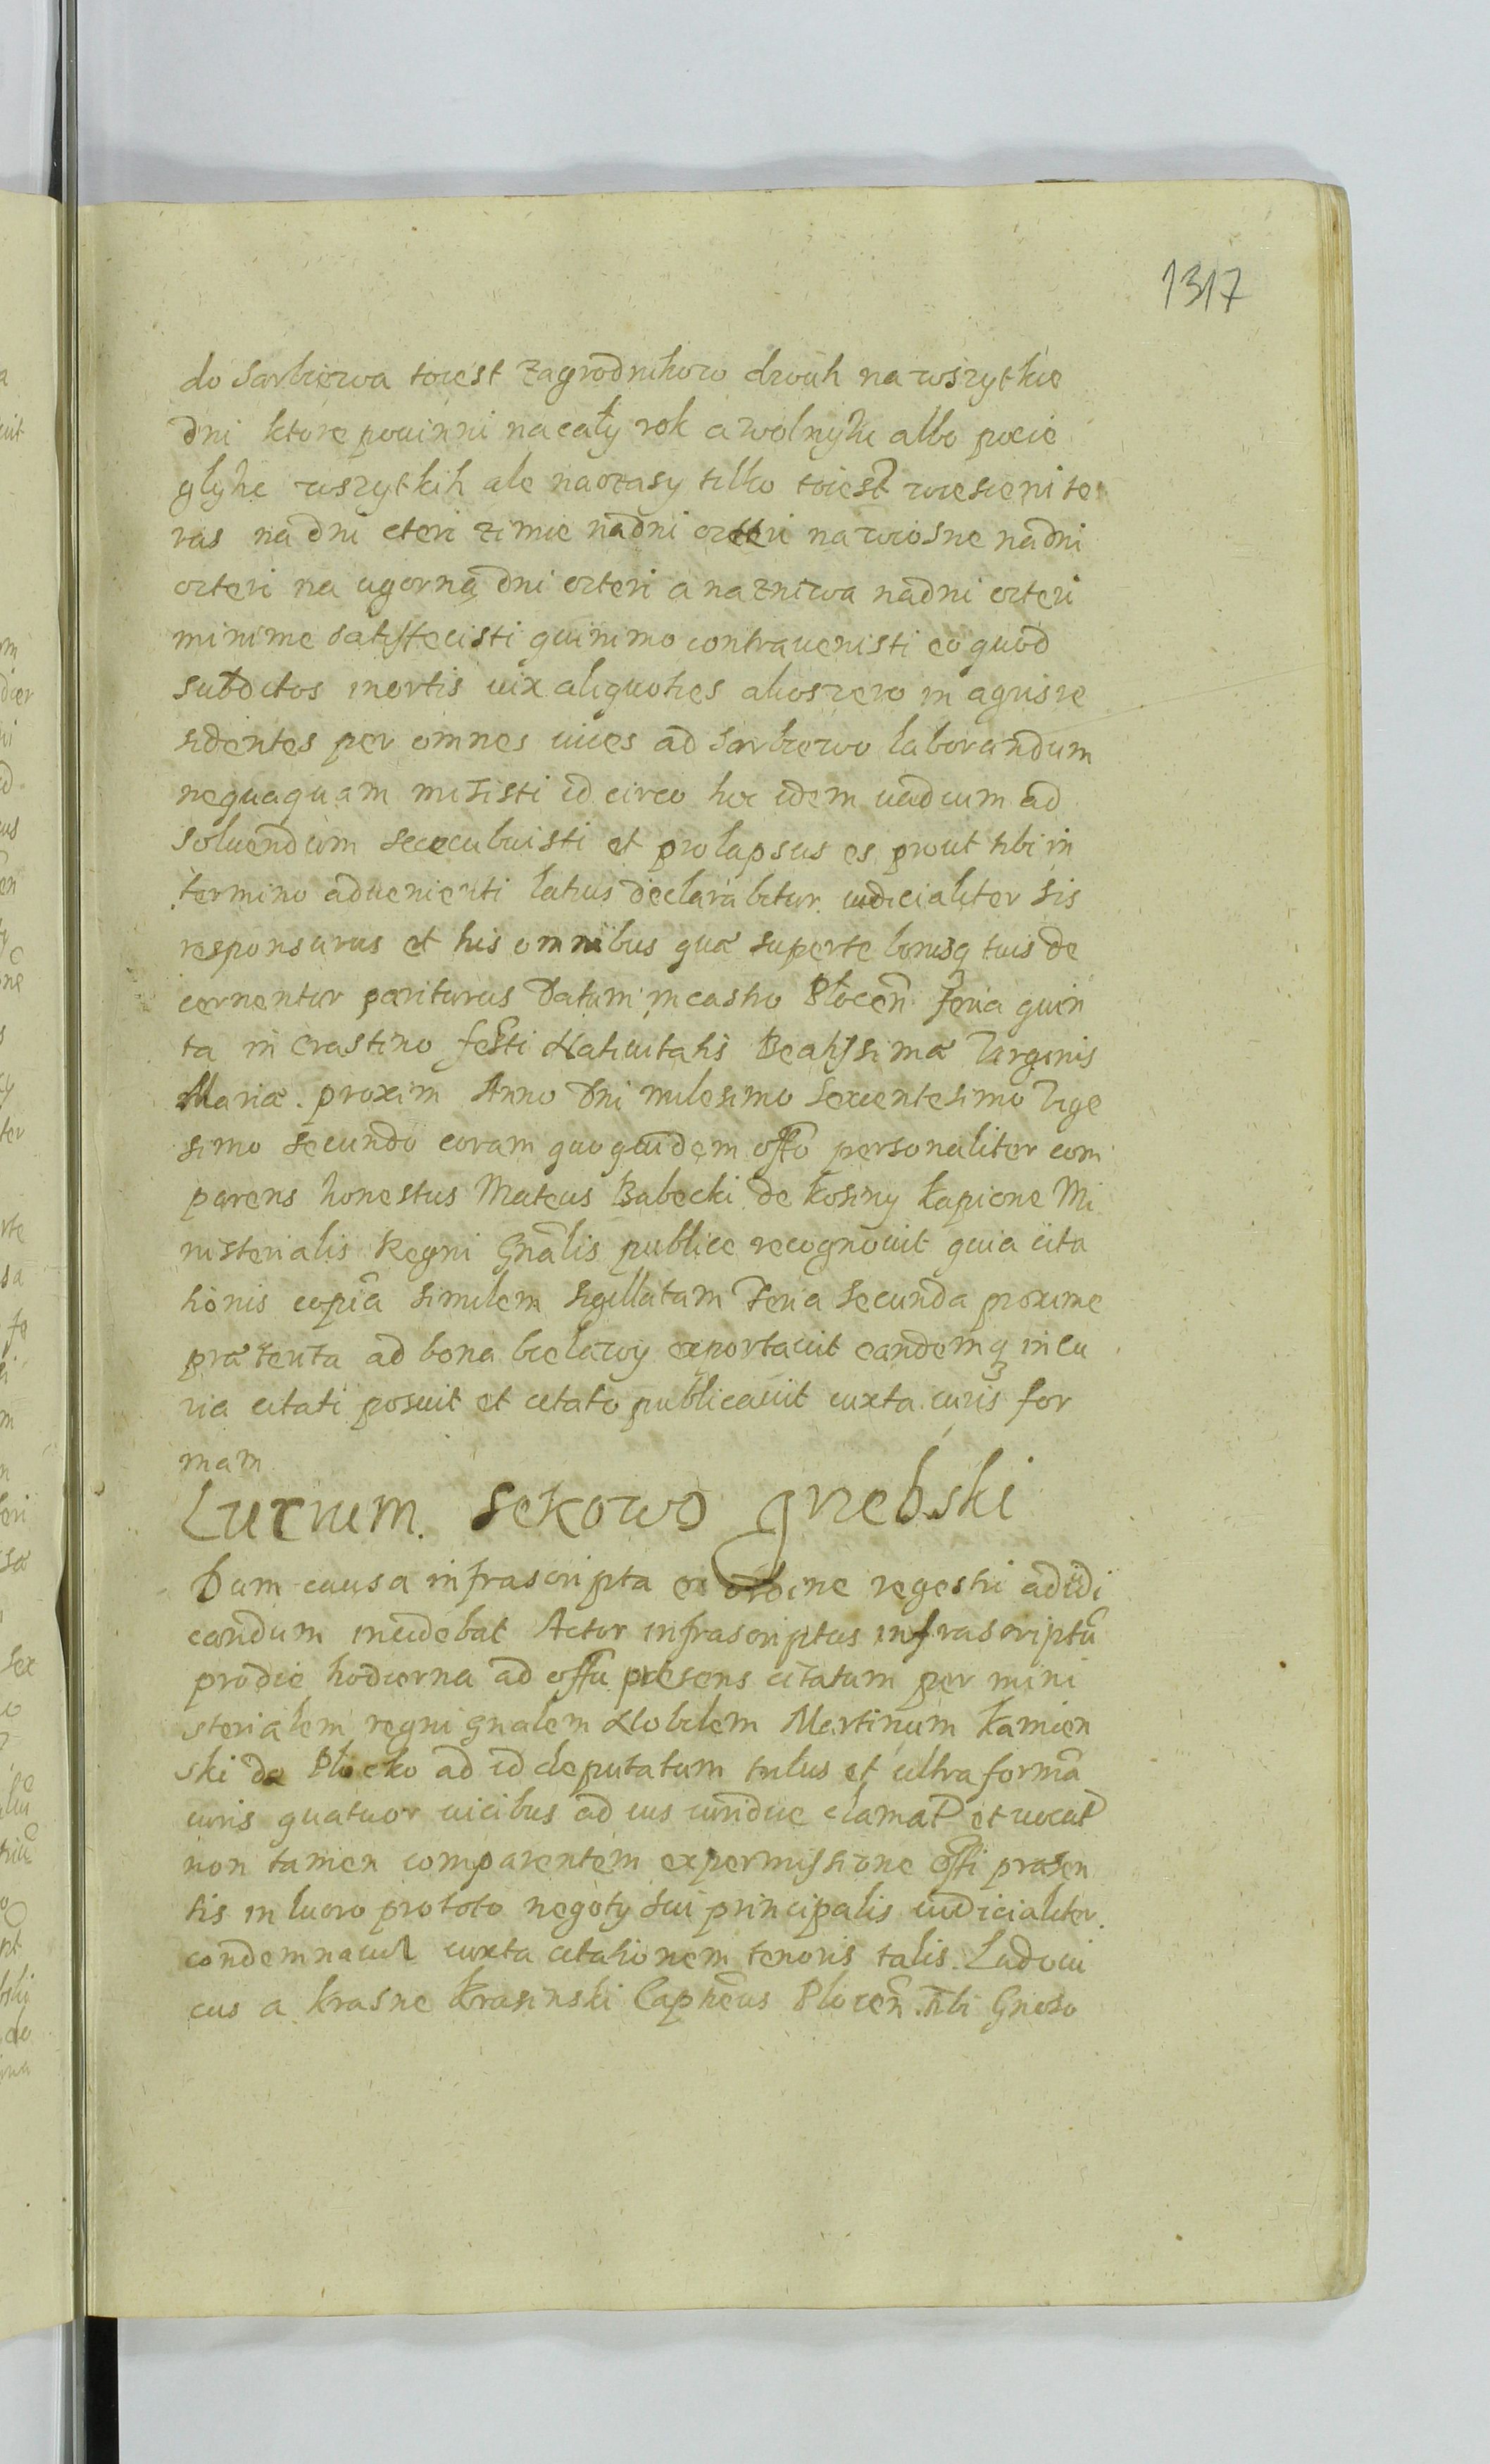 1317
do Sarbiewa toiest zagrodnikow dwuh na wszytkie
dni ktore powinni na caly rok a wolnyhe albo pocie
glyhe wszytkih ale na czasy tilko toiest wiesieni te
ras na dni cteri zimie na dni czteri na wiosne na dni
czteri na ugorną dni czteri a na zniwa na dni czteri
minime satisfecisti quinimo contravenisti eo quod
subditos inertis vix aliquoties alios vero in agris re
sidentes per omnes vices ad Sarbiewo laborandum
nequaquam misisti id circo hoc idem vadium ad
soluendum succubuisti et prolapsus es prout tibi in
termino aduenienti latius declarabitur iudicialiter sis
responsurus et his omnibus quæ super te bonisq tuis de
cernentur pariturus Datum in castro Plocen feria quin
ta in crastino festi Natiuitatis Beatissimæ Virginis
Mariæ proxim Anno Dni milesimo Sexcentesimo Vige
simo secundo coram quoquidem offo personaliter com
parens honestus Mateus Babecki de kosiny kapione Mi
nisterialis Regni Gnalis publice recognouit quia cita
tionis copiã similem sigillatam Feria Secunda proxime
præterita ad bona bielawy exportauit eandemq in cu
ria citati posuit et citato publicauit iuxta iuris for
mam
Lucrum. Sekowo Gnebski
Dum causa infrascripta ex ordine regestri adiudi
candum incidebat Actor infrascriptus infrascriptũ
pro die hodierna ad offm præsens citatum per mini
sterialem regni gnalem Nobilem Martinum kamien
ski de Plocko ad id deputatum tulus et ultra formã
iuris quatuor vicibus ad ius iuridice clamat et vocat
non tamen comparentem ex permissione offi præsen
tis in lucro pro toto negoty sui principalis iudicialiter
condemnauit iuxta citationem tenoris talis. Ludoui
cus a krasne krasinski Capneus Plocen. Tibi Gneso